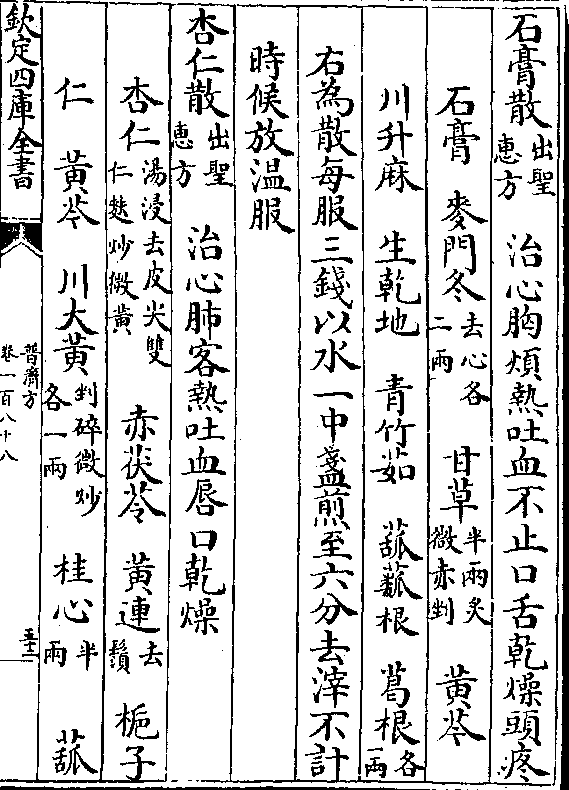 石膏散出聖惠方 治心胸煩熱吐血不止口舌乾燥頭疼
石膏 麥門冬去心各二兩 甘草半兩炙微赤剉 黄芩
川升麻 生乾地 青竹茹 蓏蓏根 葛根各一兩
右為散每服三錢以水一中盞煎至六分去滓不計
時候放温服
杏仁散出聖惠方 治心肺客熱吐血唇口乾燥
杏仁湯浸去皮尖雙仁麩炒微黄 赤茯苓 黄連去鬚 梔子
仁 黄芩 川大黄剉碎微炒各一兩 桂心半兩 蓏
欽定四庫全書
普濟方
卷一百八十八